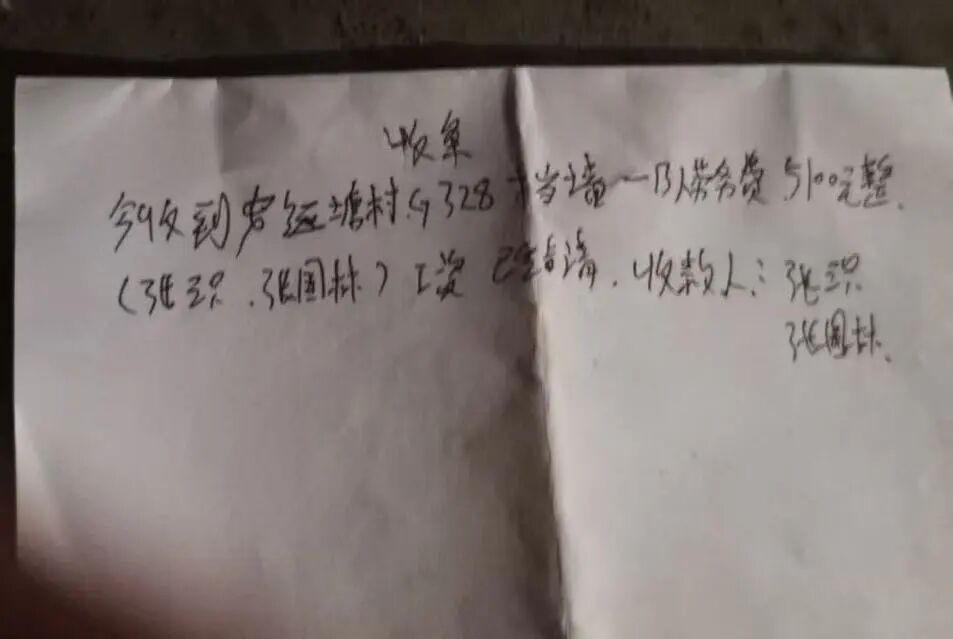 收条
今收到宕运塘村G328挡当墙一队劳务费5100元整.
(张识.张国林)工资已结清.收款人:张识
张国林.